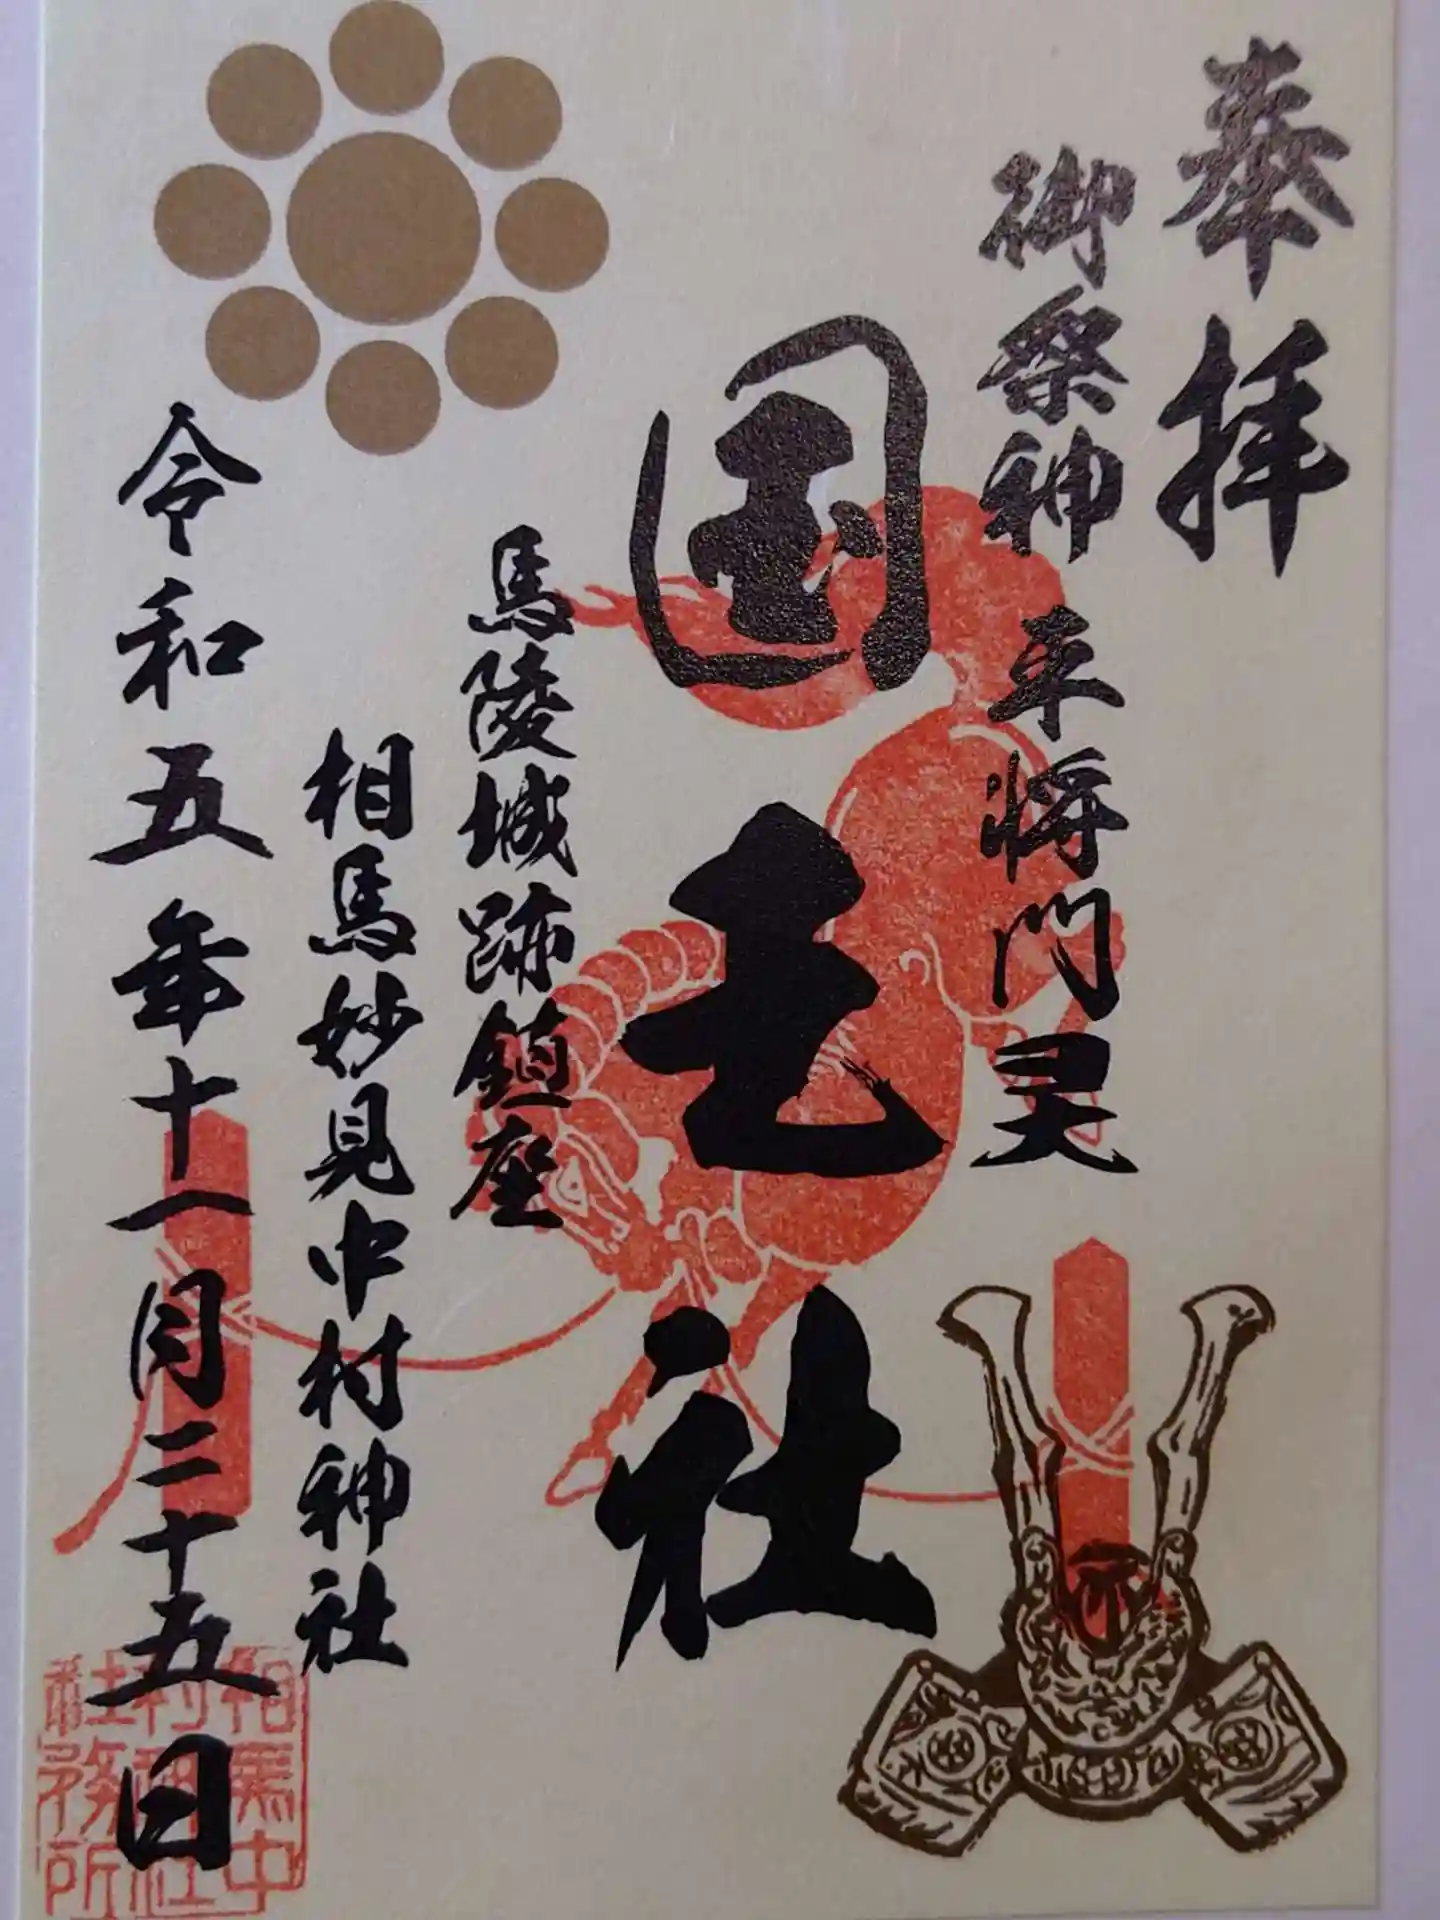 奉拝
御祭神 平将門灵
国王社
馬陵城跡鎮座
相馬妙見中村神社
令和五年十一月二十五日
相馬中
村神社
社務所